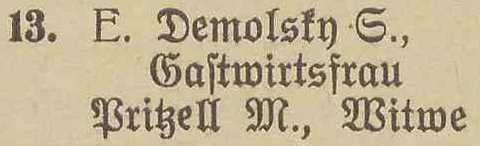 13. E. Demolsky S.,
Gastwirtsfrau
Pritzell M., Witwe